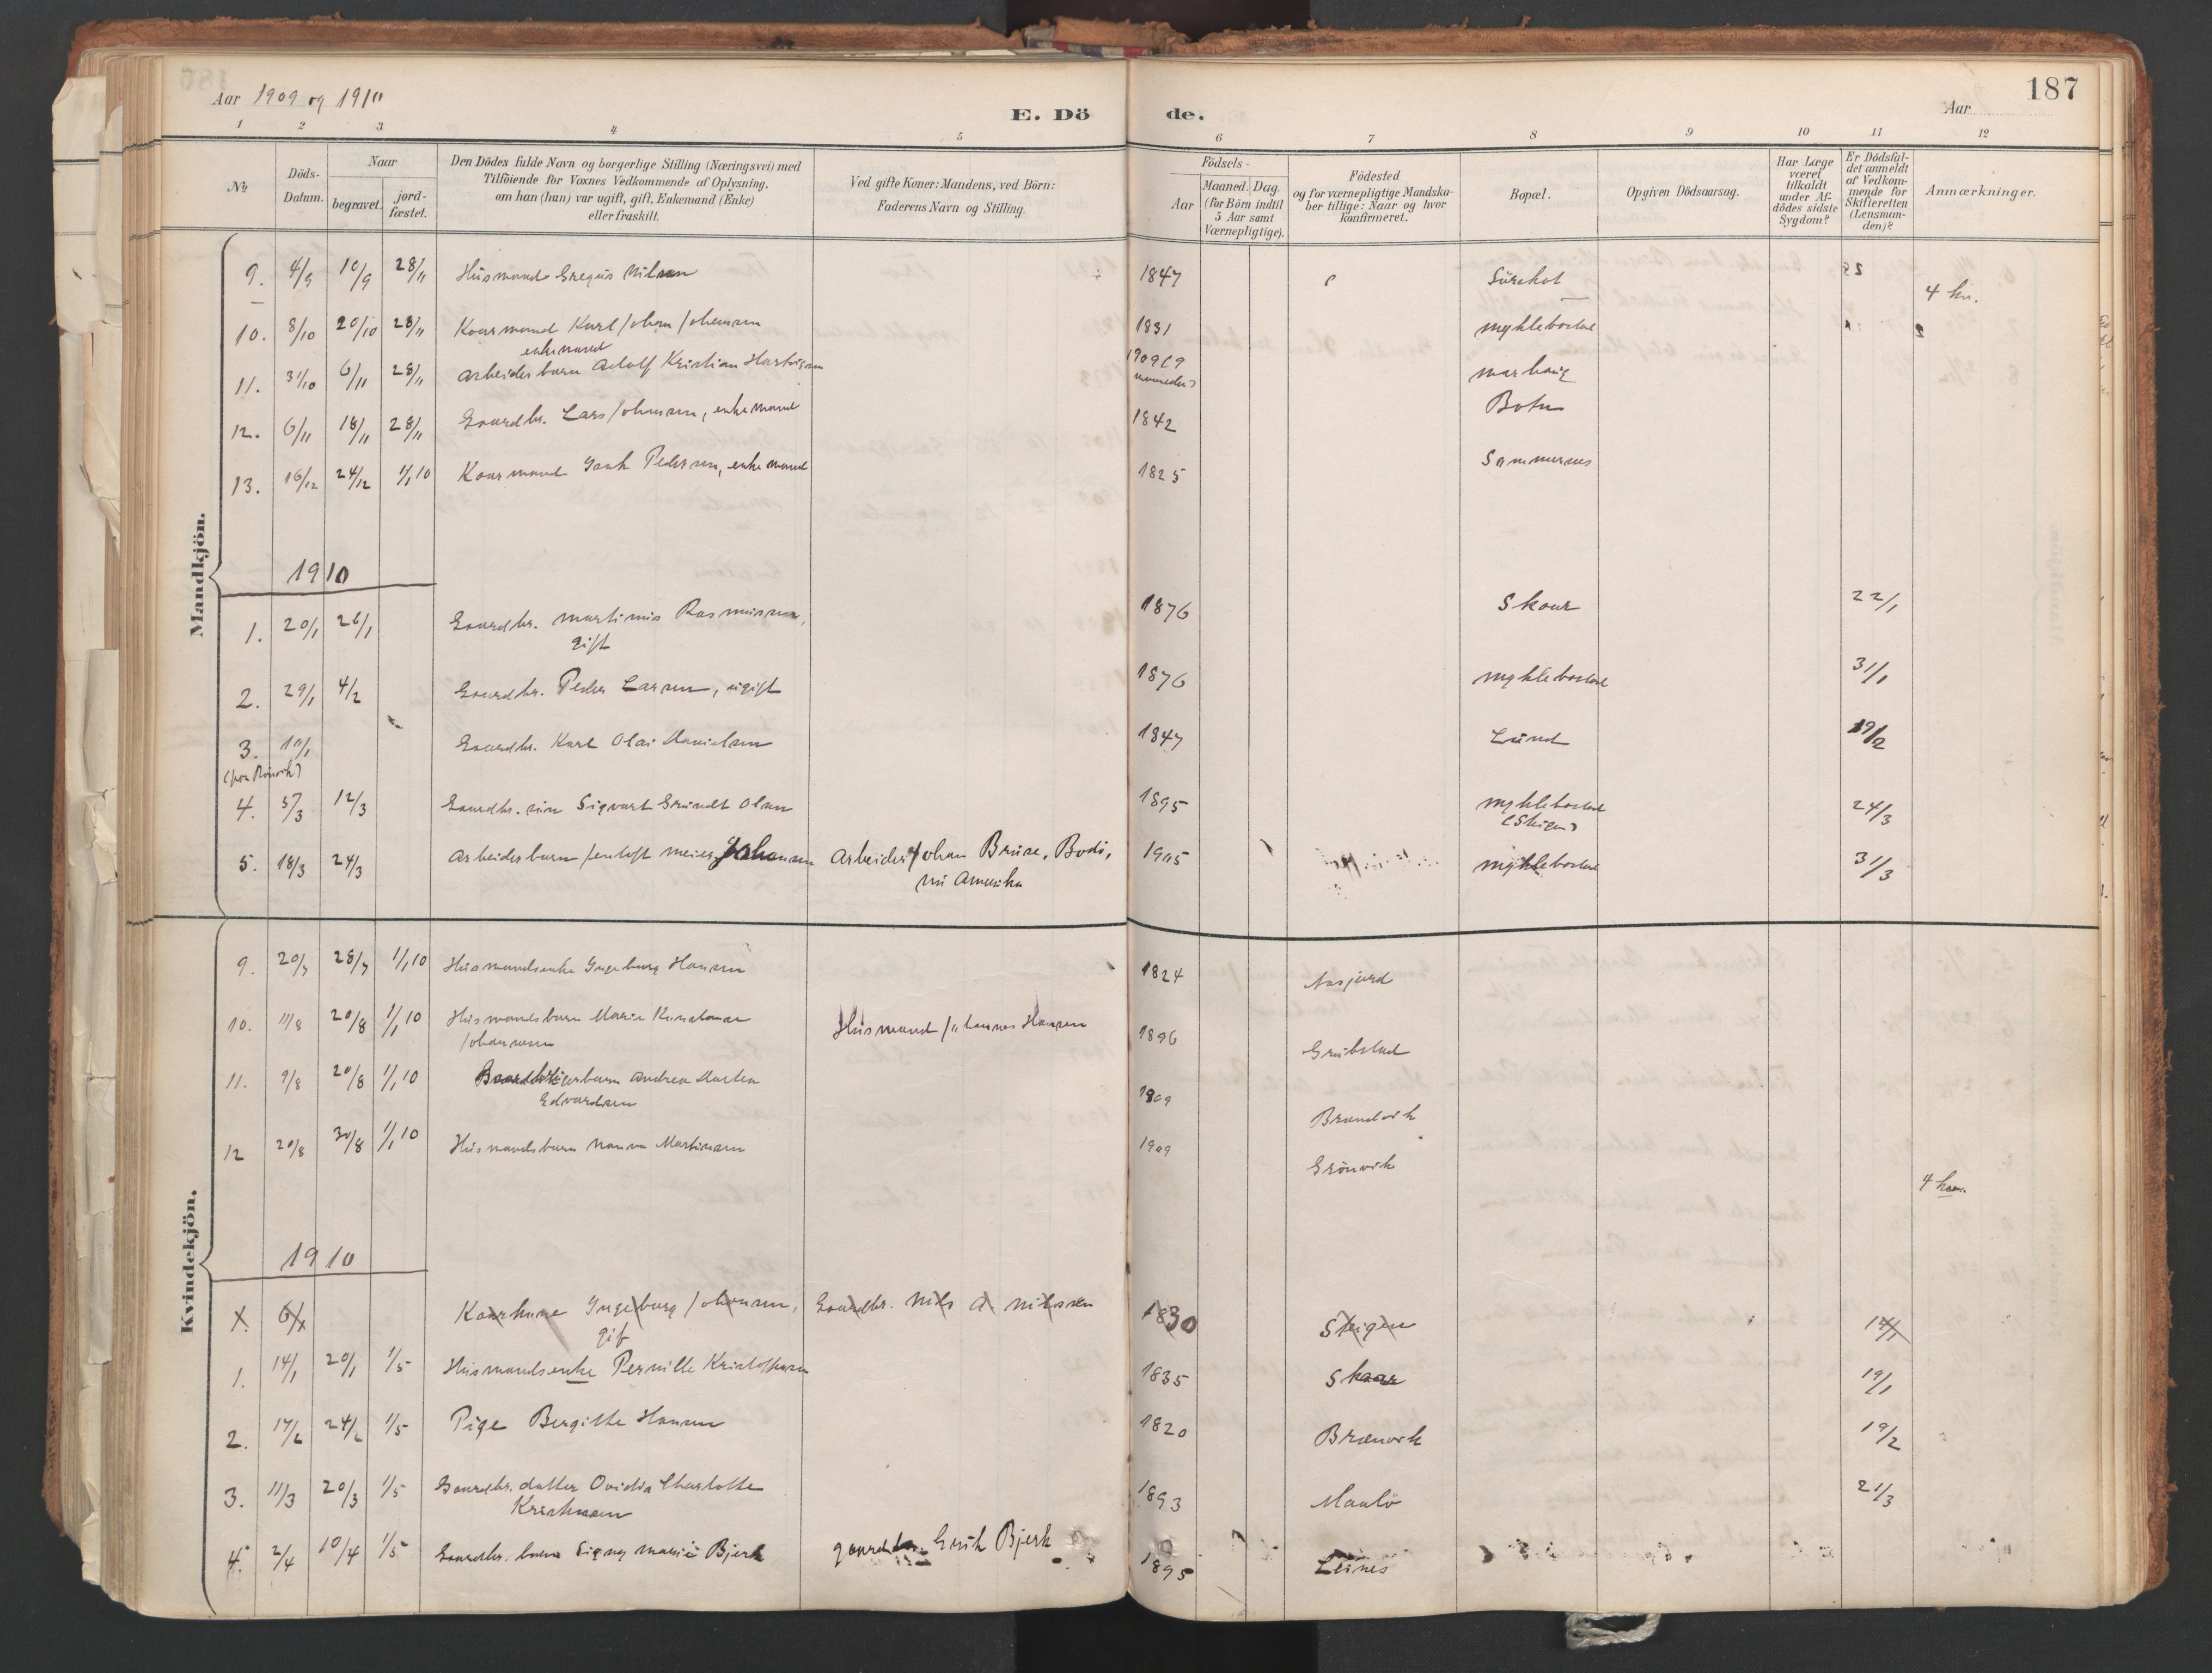 Aar 1909 og 1910
E. Dö de.
Aar
187
1 2 3 4 5 6 7 8 9 10 11 12
No
Döds-Datum.
Naar
begravet.
jord-fæstet.
Den Dödes fulde Navn og borgerlige Stilling (Næringsvei) med
Tilföiende for Voxnes Vedkommende af Oplysning,
om han (hun) var ugift, gift, Enkemand (Enke)
eller fraskilt.
Ved gifte Koner: Mandens, ved Börn:
Faderens Navn og Stilling.
Födsels-
Aar
Maaned. Dag.
(for Börn indtil
5 Aar samt
Værnepligtige).
Födested
og for værnepligtige Mandska-
ber tillige: Naar og hvor
konfirmeret.
Bopæl.
Opgiven Dödsaarsag.
Har Læge
været
tilkaldt
under Af-
dödes sidste
Sygdom?
Er Dödsfal-
det anmeldt
af Vedkom-
mende for
Skifteretten
(Lensman-
den)?
Anmærkninger.
Mandkjön.
9. 4/9 10/9 28/11 Husmand Gregus Nilsen 1847
4 kr.
10. 8/10 20/10 28/11 Kaarmand Karl Johan Johansen 1831 Myklebostad
enkemand
11. 31/10 6/11 28/11 Arbeiderbarn Adolf Kristian Hartvigsen 1909 (9 Marhaug
maaneder)
12. 6/11 18/11 28/11 Gaardbr. Lars Johansen, enkemand 1842 Botn
13. 16/12 24/12 1/1 10 Kaarmand Isak Pedersen, enkemand 1825 Sommernes
1910
1. 20/1 26/1 Gaardbr. Martinus Rasmussen, 1876 Skaar 22/1
gift
2. 29/1 4/2 Gaardbr. Peder Larsen, ugift 1876 Myklebostad 31/1
3. 10/1 Gaardbr. Karl Olai Danielsen 1847 Lund 19/2
4. 5/3 12/3 Gaardbr. sön Sigvart Grundt Olsen 1895 Myklebostad 24/3
(Steigen)
5. 18/3 24/3 Arbeiderbarn Jentoft Meier Johansen Arbeider Johan Bruse, Bodö, 1905 Myklebostad 31/3
nu Amerika
Kvindekjön.
9. 20/7 28/7 1/1 10 Husmandsenke Ingeborg Hansen 1824 Aasjord
10. 11/8 20/8 1/1 10 Husmandsbarn Marie Konstanse Husmand Johannes Hansen 1896 Grubstad
Johannesen
11. 9/8 20/8 1/1 10 Andrea Martea 1909 Brandvik
Edvardsen
12 20/8 30/8 1/1 10 Husmandsbarn Nanna Martinsen 1909 Grönvik
4 kr.
1910
X. 6/1 Kaarkone Ingeborg Johansen, Gaardbr. Nils A Nilssen 1830 Steigen
gift
1. 14/1 20/1 1/5 Husmandsenke Pernille Kristoffersen 1835 Skaar 19/1
2. 17/2 24/2 1/5 Pige Bergitte Hansen 1820 Brænvik 19/2
3. 11/3 20/3 1/5 Gaardbr. datter Ovidia Charlotte 1893 Maalö 21/3
Kristiansen
4. 2/4 10/4 1/5 Gaardbr. barn Signy Marie Bjerk gaardbr. Erik Bjerk 1895 Leines